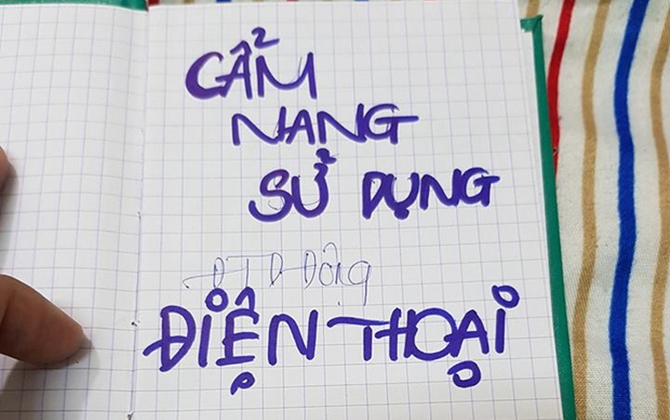 CẨM
NANG
SỬ DỤNG
ĐTD Động
ĐIỆN THOẠI